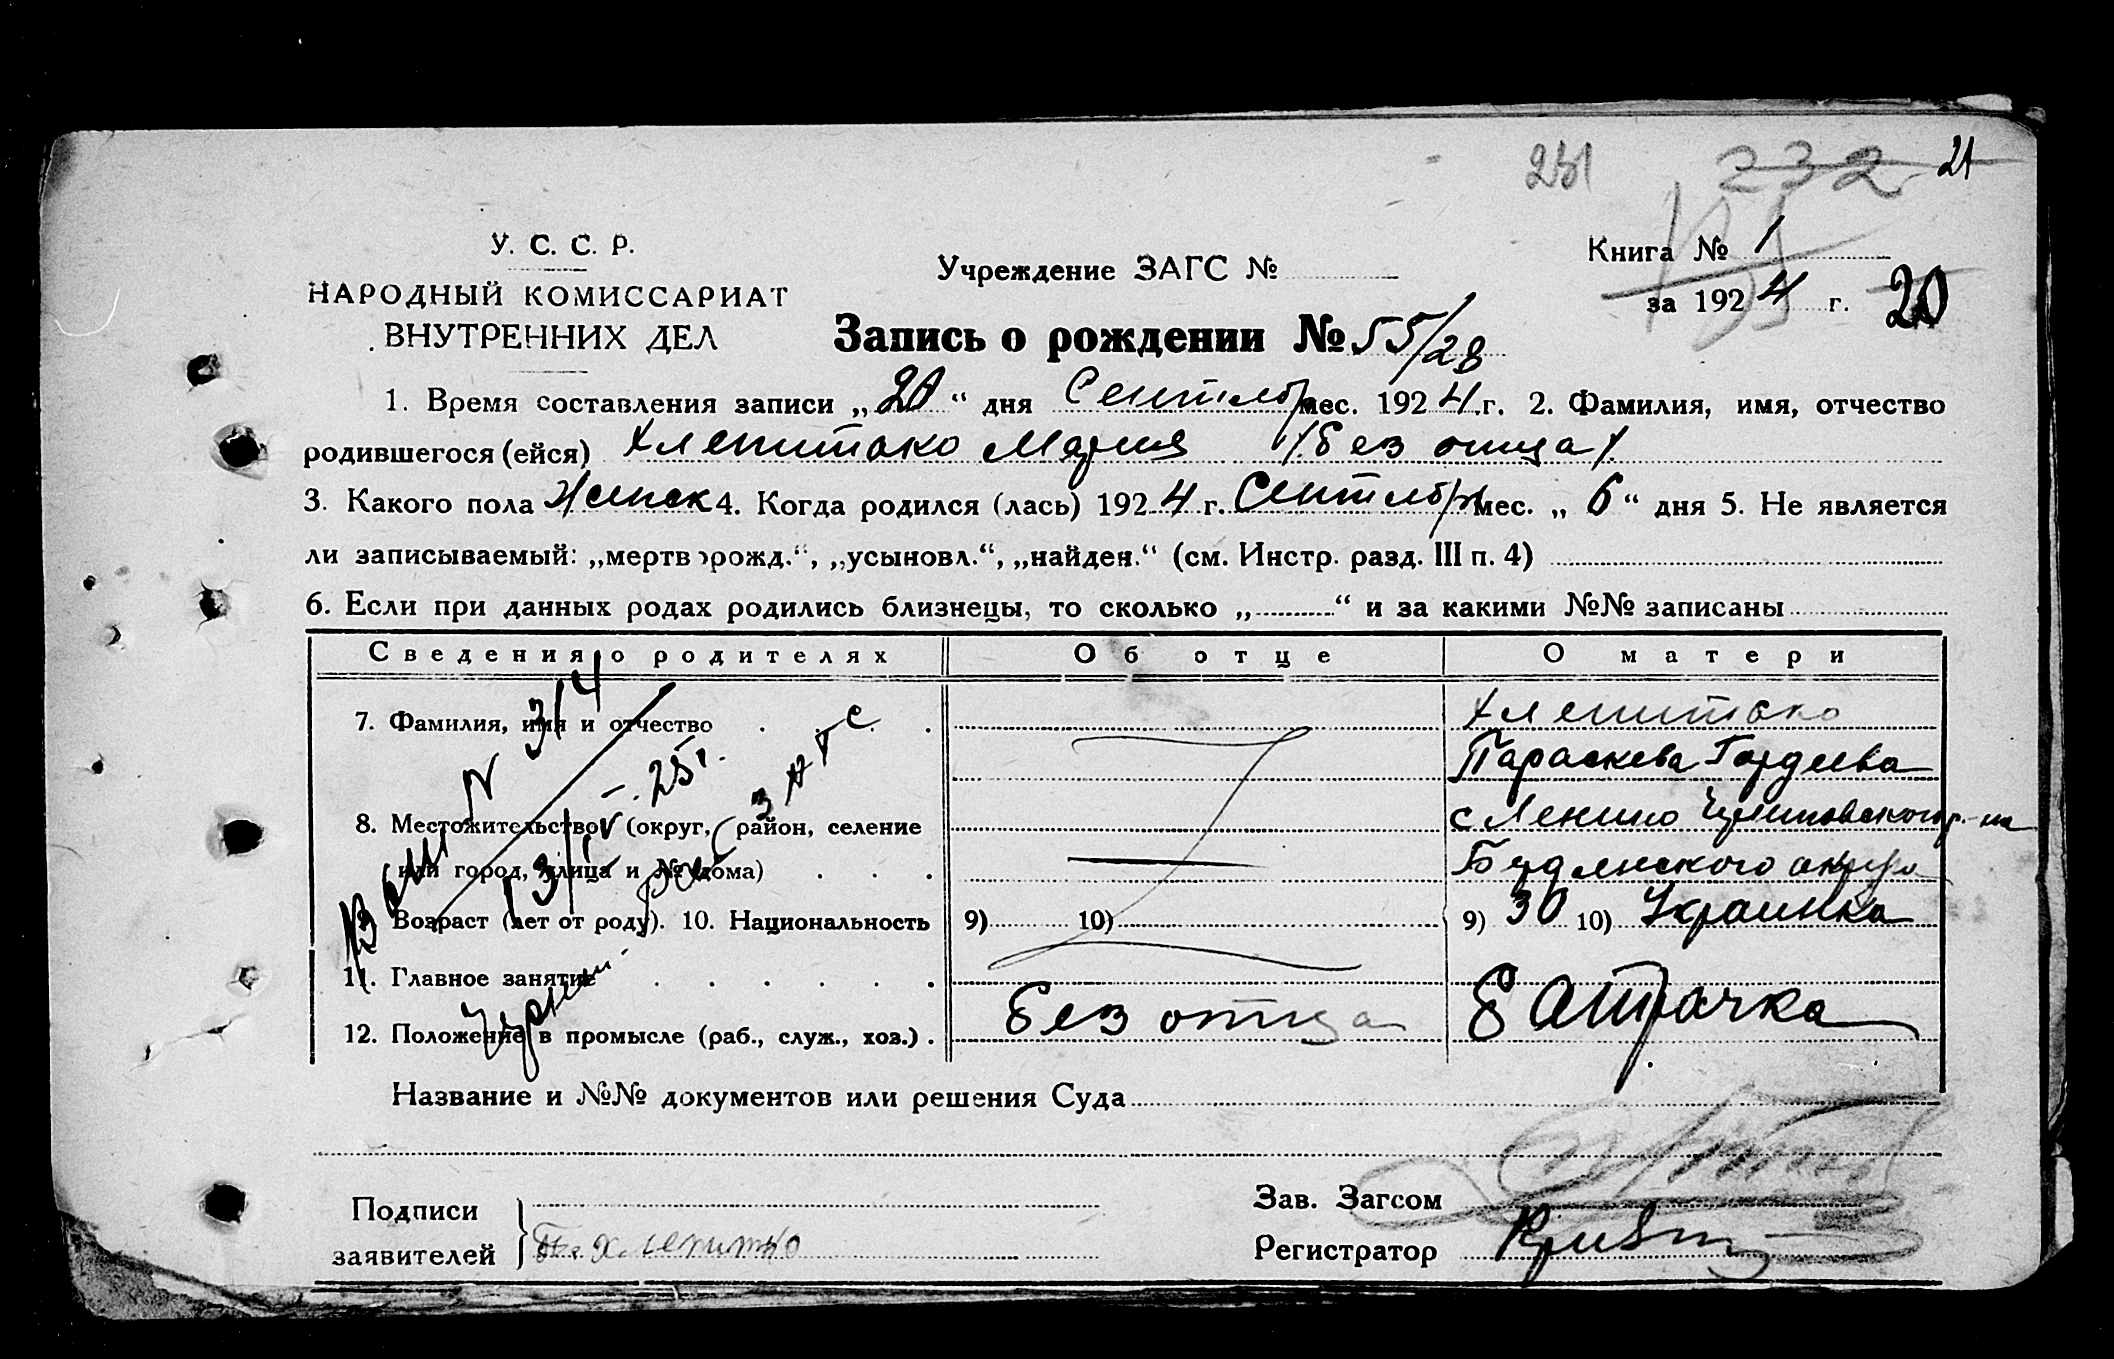 231 232 21
У. С. С. Р.
НАРОДНЫЙ КОМИССАРИАТ
ВНУТРЕННИХ ДЕЛ
Учреждение ЗАГС №
Книга № 1
за 1924 г. 20
Запись о рождении № 55/28
1. Время составления записи „20“ дня Сентябр мес. 1924 г. 2. Фамилия, имя, отчество
родившегося (ейся) Хлепитько Мария (без отца).
3. Какого пола Женск 4. Когда родился (лась) 1924 г. Сентября мес. „6“ дня 5. Не является
ли записываемый: „мертворожд.“, „усыновл.“, „найден.“ (см. Инстр. разд. III п. 4)
6. Если при данных родах родились близнецы, то сколько „ “ и за какими №№ записаны
Сведения о родителях Об отце О матери
7. Фамилия, имя и отчество Хлепитько
Параскева Гордеева
8. Местожительство (округ, район, селение с Ленино
или город, улица и № дома)
9. Возраст (лет от роду). 10. Национальность 9) 10) 9) 30 10) Украинка
11. Главное занятие
12. Положение в промысле (раб., служ., хоз.) без отца батрачка
N 314
25 г.
загс
Название и №№ документов или решения Суда
Подписи
заявителей
Зав. Загсом
Регистратор